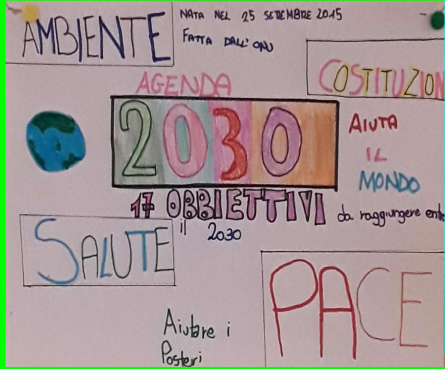 AMBIENTE
NATA NEL 25 SETTEMBRE 2015
FATTA DALL'ONU
COSTITUZION
AGENDA
2030
AIUTA
IL
MONDO
17 OBBIETTIVI da raggiungere ent
il 2030
SALUTE
PACE
Aiutare i
Posteri